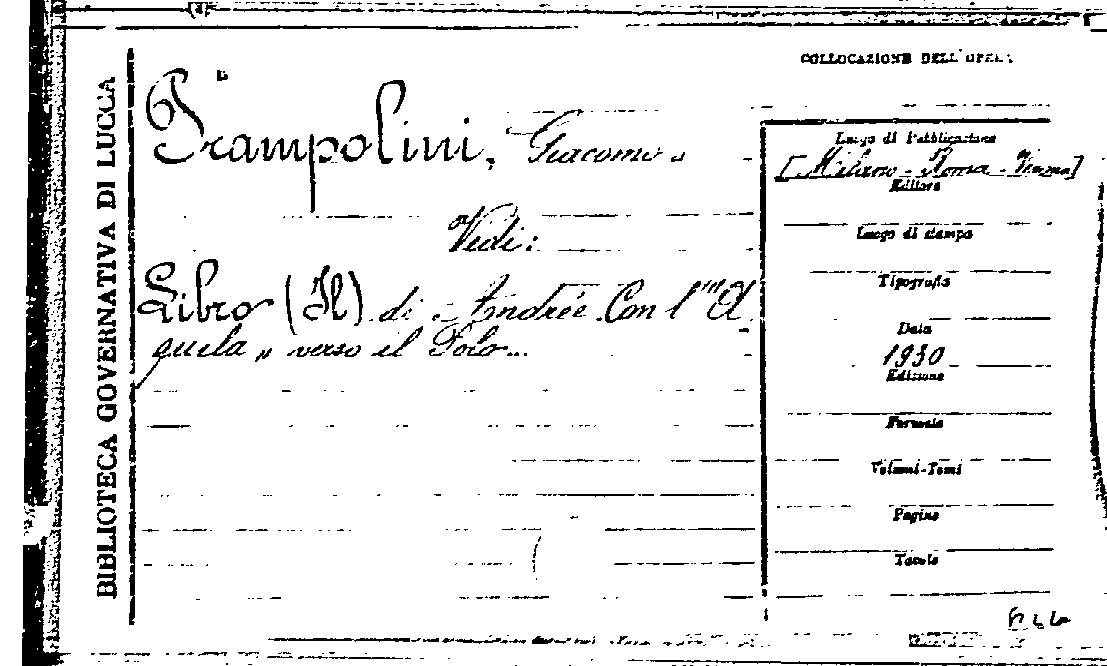 BIBLIOTECA GOVERNATIVA DI LUCCA
COLLOCAZIONE DELL'OPERA
Prampolini, Giacomo.
Vedi:
Libro (Il) di Andrée. Con l'"A
quila„ verso il Polo...
Luogo di Pubblicazione
[Milano - Roma - Vienna]
Editore
Luogo di stampa
Tipografia
Data
1930
Edizione
Formato
Volumi-Tomi
Pagine
Tavole